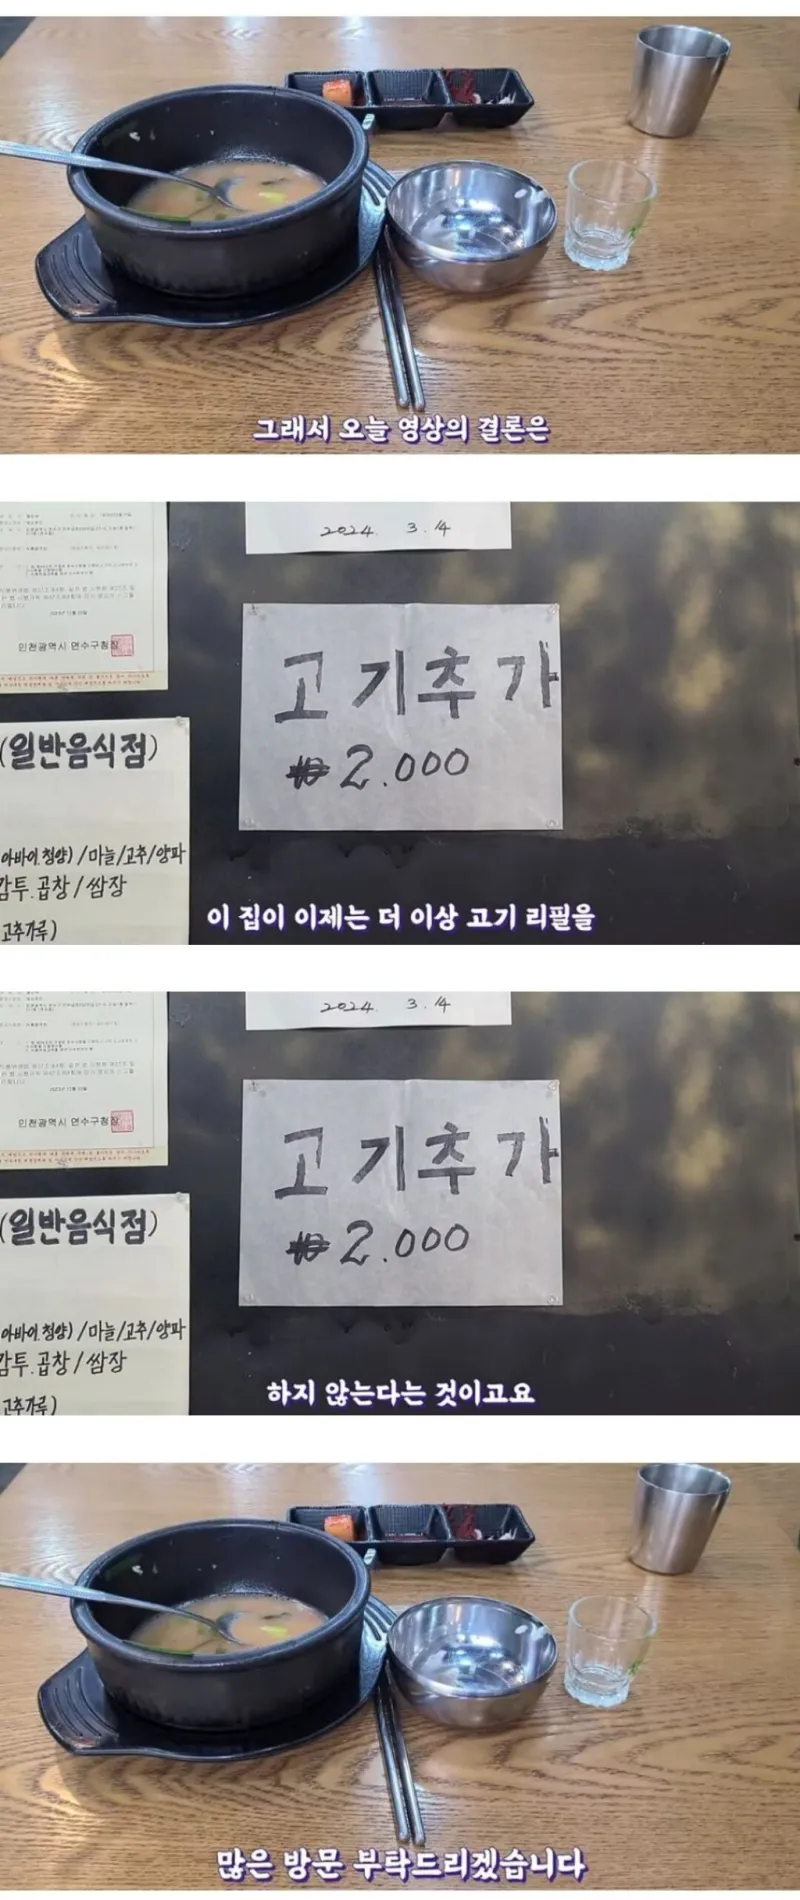 그래서 오늘 영상의 결론은
2024. 3. 14
인천광역시 연수구청장
고기추가
₩2.000
(일반음식점)
아바이.청양) /마늘/고추/양파
감투.곱창/쌈장
고추가루)
이 집이 이제는 더 이상 고기 리필을
2024. 3. 14
인천광역시 연수구청장
고기추가
₩2.000
(일반음식점)
아바이.청양) /마늘/고추/양파
감투.곱창/쌈장
고추가루)
하지 않는다는 것이고요
많은 방문 부탁드리겠습니다